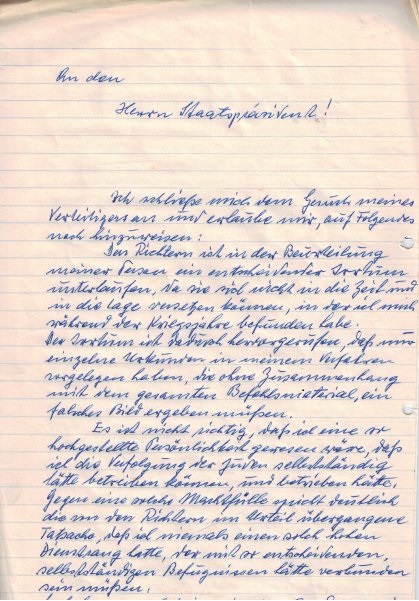 An den
Herrn Staatspräsident!
Ich schließe mich dem Gesuch meines
Verteitigers an und erlaube mir, auf Folgendes
noch hinzuweisen:
Den Richtern ist in der Beurteilung
meiner Person ein entscheidender Irrtum
unterlaufen, da sie sich nicht in die Zeit und
in die Lage versetzen können, in der ich mich
während der Kriegsjahre befunden habe.
Der Irrtum ist dadurch hervorgerufen, daß mir
einzelne Urkunden in meinem Verfahren
vorgelegen haben, die ohne Zusammenhang
mit dem gesamten Befehlsmaterial, ein
falsches Bild ergeben müßen.
Es ist nicht richtig, daß ich eine so
hochgestellte Persönlichkeit gewesen wäre, daß
ich die Verfolgung der Juden selbstständig
hätte betreiben können, und betrieben hätte.
Gegen eine solche Machtfülle spricht deutlich
die von den Richtern im Urteil übergangene
Tatsache, daß ich niemals einen solch hohen
Dienstrang hatte, der mit so entscheidenden,
selbstständigen Befugnissen hätte verbunden
sein müßen.